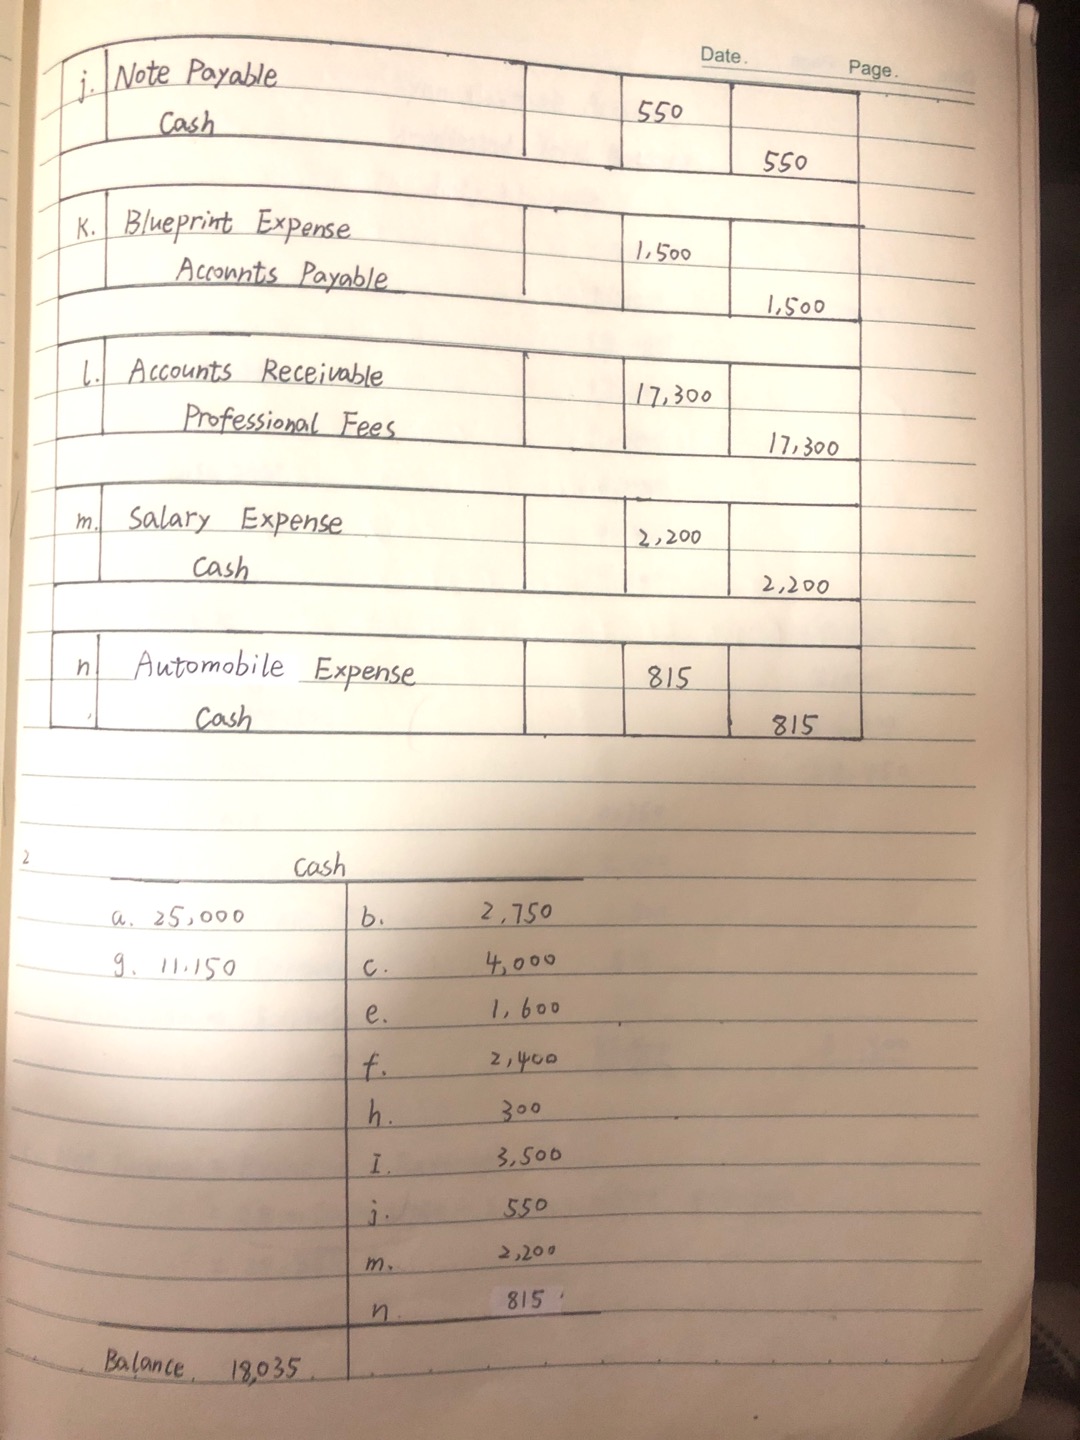 Date. Page.
j. Note Payable 550
Cash 550
K. Blueprint Expense 1,500
Accounts Payable 1,500
l. Accounts Receivable 17,300
Professional Fees 17,300
m. Salary Expense 2,200
Cash 2,200
n Automobile Expense 815
Cash 815
2 Cash
a. 25,000 b. 2,750
g. 11,150 c. 4,000
e. 1,600
f. 2,400
h. 300
I. 3,500
j. 550
m. 2,200
n. 815
Balance. 18,035